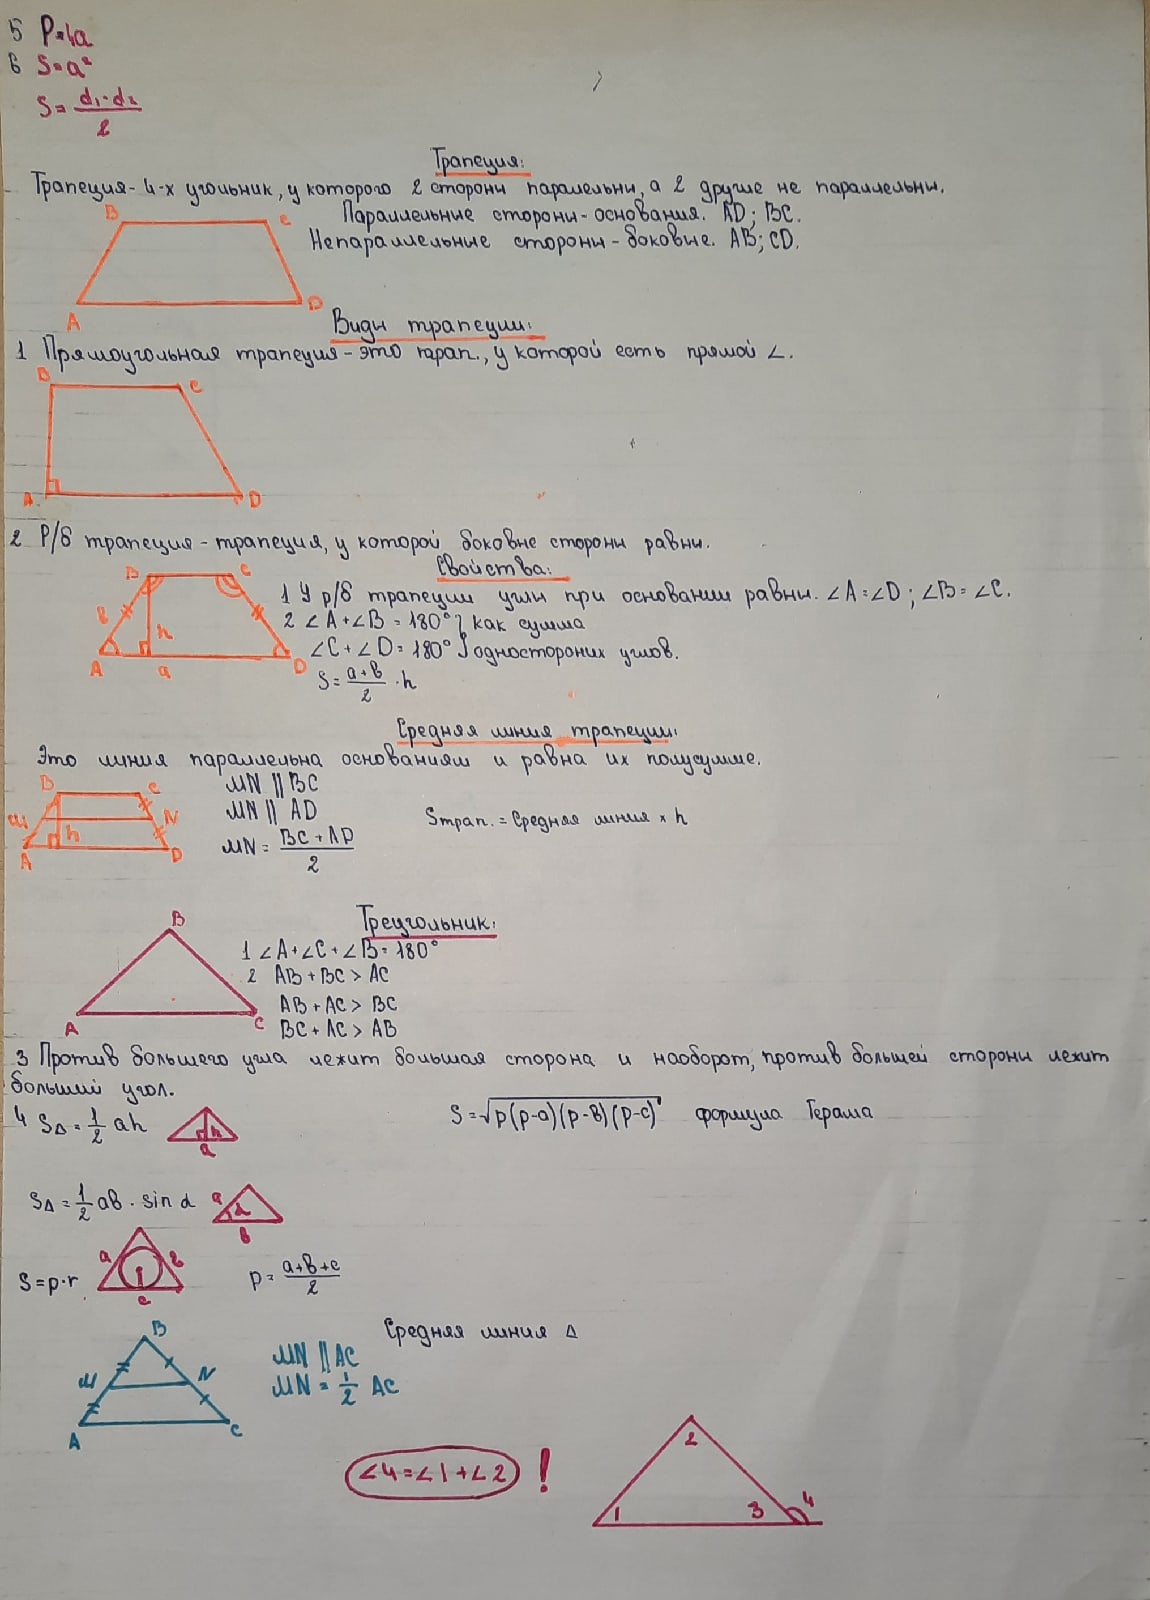 5 P=4a
6 S=a²
S= d₁·d₂/2
Трапеция:
Трапеция- 4-х угольник, у которого 2 стороны параллельны, а 2 другие не параллельны.
B C
Параллельные стороны-основания. AD; BC.
Непараллельные стороны-боковые. AB; CD.
A D
Виды трапеции:
1 Прямоугольная трапеция-это трап., у которой есть прямой ∠.
B C
A D
2 Р/б трапеция-трапеция, у которой боковые стороны равны.
Свойства:
B C
1 У р/б трапеции углы при основании равны. ∠A=∠D; ∠B=∠C.
в h
2 ∠A+∠B=180° } как сумма
∠C+∠D=180° } одностороних углов.
A a D
S= a+в/2 ·h
Средняя линия трапеции:
Это линия параллельна основаниям и равна их полусумме.
B C
MN || BC
M N
MN || AD
h
Sтрап.=Средняя линия × h
A D
MN= BC+AD/2
Треугольник:
B
1 ∠A+∠C+∠B=180°
2 AB+BC>AC
AB+AC>BC
A C
BC+AC>AB
3 Против большего угла лежит большая сторона и наоборот, против большей стороны лежит
больший угол.
4 S△=1/2 ah
h
a
S=√p(p-a)(p-в)(p-c) формула Герана
S△=1/2 aв·sin α
a α
в
S=p·r
a в
c
p= a+в+c/2
Средняя линия △
B
MN || AC
M N
MN=1/2 AC
A C
∠4=∠1+∠2 !
2
1 3 4